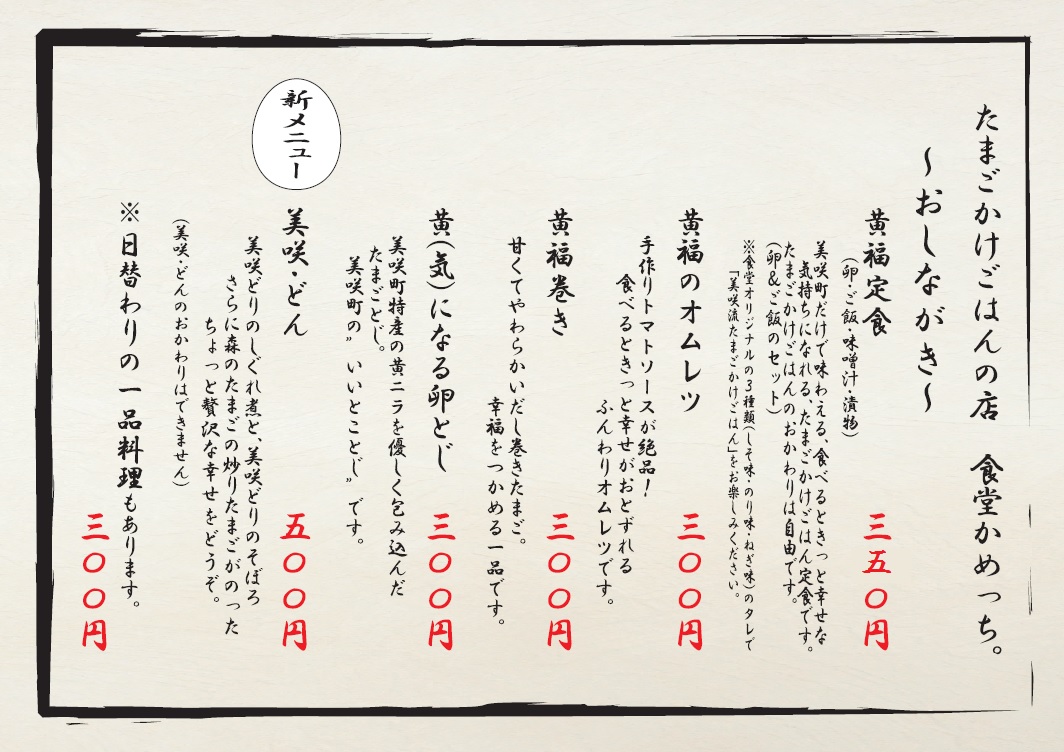 たまごかけごはんの店　食堂かめっち。
～おしながき～
黄福定食　三五〇円
（卵・ご飯・味噌汁・漬物）
美咲町だけで味わえる、食べるときっと幸せな
気持ちになれる、たまごかけごはん定食です。
たまごかけごはんのおかわりは自由です。
（卵&ご飯のセット）
※食堂オリジナルの３種類（しそ味・のり味・ねぎ味）のタレで
「美咲流たまごかけごはん」をお楽しみください。
黄福のオムレツ　三〇〇円
手作りトマトソースが絶品！
食べるときっと幸せがおとずれる
ふんわりオムレツです。
黄福巻き　三〇〇円
甘くてやわらかいだし巻きたまご。
幸福をつかめる一品です。
黄（気）になる卵とじ　三〇〇円
美咲町特産の黄ニラを優しく包み込んだ
たまごとじ。
美咲町の〝いいとことじ〟です。
新メニュー
美咲・どん　五〇〇円
美咲どりのしぐれ煮と、美咲どりのそぼろ
さらに森のたまごの炒りたまごがのった
ちょっと贅沢な幸せをどうぞ。
（美咲・どんのおかわりはできません）
※日替わりの一品料理もあります。
三〇〇円